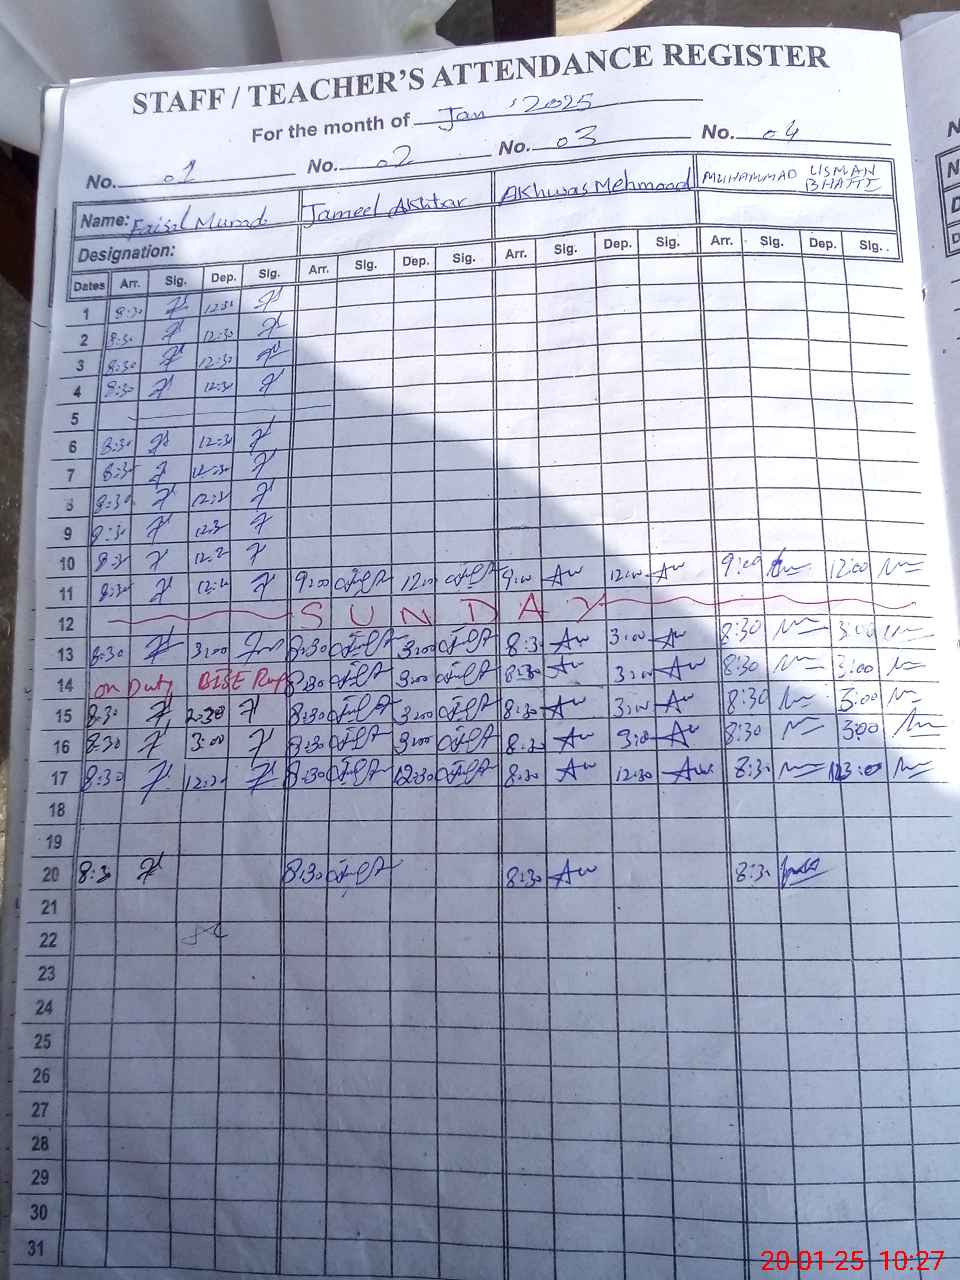 STAFF / TEACHER'S ATTENDANCE REGISTER
For the month of Jan '2025
No. 01 No. 02 No. 03 No. 04
Name: Faisal Murad Jameel Akhtar Akhwas Mehmood MUHAMMAD USMAN BHATTI
Designation:
Dates Arr. Sig. Dep. Sig. Arr. Sig. Dep. Sig. Arr. Sig. Dep. Sig. Arr. Sig. Dep. Sig.
1 8:30 12:30
2 8:30 12:30
3 8:30 12:30
4 8:30 12:30
5
6 8:30 12:30
7 8:30 12:30
8 8:30 12:30
9 8:30 12:30
10 8:30
11 8:30 9:00 12:00 9:00 12:00 9:00 12:00
12 SUNDAY
13 8:30 3:00 8:30 3:00 8:30 3:00 8:30 3:00
14 on Duty BISE 8:30 3:00 8:30 3:00 8:30 3:00
15 8:30 2:30 8:30 3:00 8:30 3:00 8:30 3:00
16 8:30 3:00 8:30 3:00 8:30 3:00 8:30 3:00
17 8:30 12:30 8:30 12:30 8:30 12:30 8:30 3:00
18
19
20 8:30 8:30 8:30 8:30
21
22
23
24
25
26
27
28
29
30
31
20-01-25 10:27